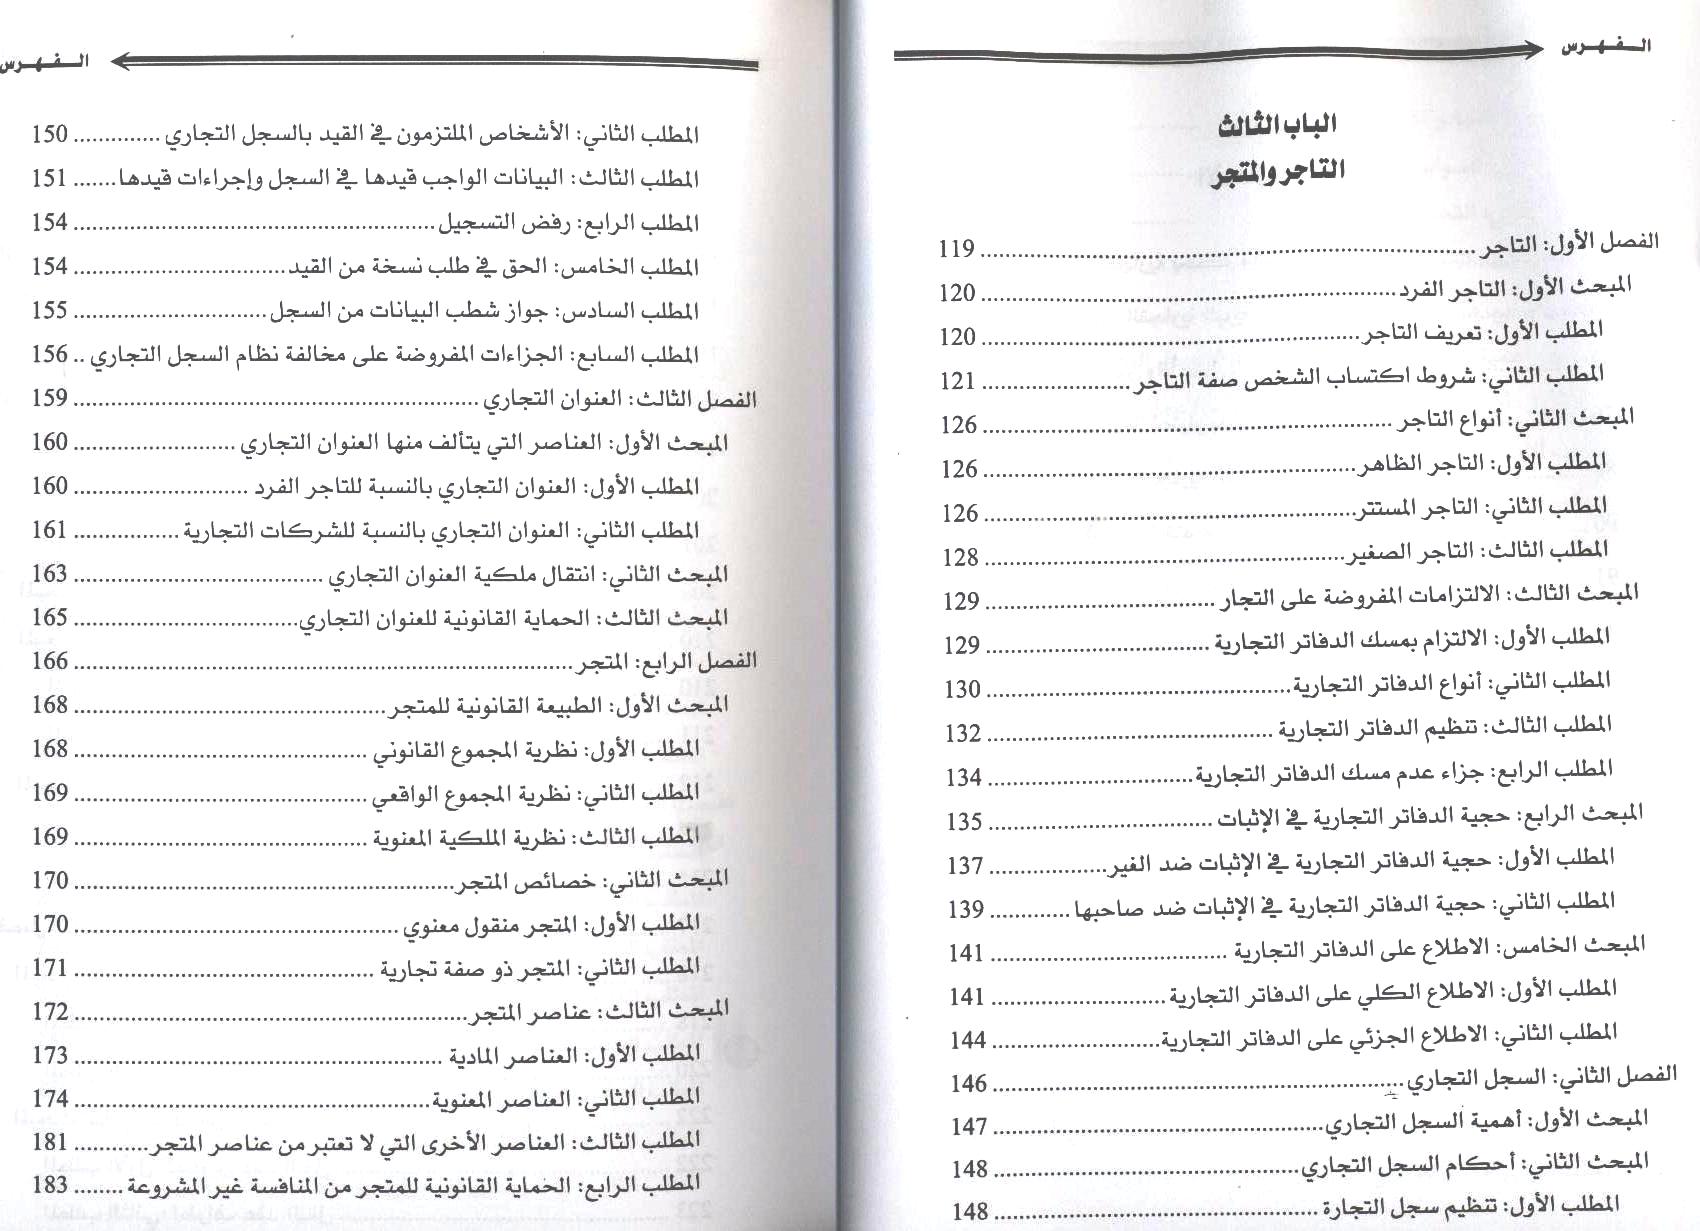 الفهرس
الباب الثالث
التاجر والمتجر
الفصل الأول: التاجر ........ 119
المبحث الأول: التاجر الفرد ........ 120
المطلب الأول: تعريف التاجر ........ 120
المطلب الثاني: شروط اكتساب الشخص صفة التاجر ........ 121
المبحث الثاني: أنواع التاجر ........ 126
المطلب الأول: التاجر الظاهر ........ 126
المطلب الثاني: التاجر المستتر ........ 126
المطلب الثالث: التاجر الصغير ........ 128
المبحث الثالث: الالتزامات المفروضة على التجار ........ 129
المطلب الأول: الالتزام بمسك الدفاتر التجارية ........ 129
المطلب الثاني: أنواع الدفاتر التجارية ........ 130
المطلب الثالث: تنظيم الدفاتر التجارية ........ 132
المطلب الرابع: جزاء عدم مسك الدفاتر التجارية ........ 134
المبحث الرابع: حجية الدفاتر التجارية في الإثبات ........ 135
المطلب الأول: حجية الدفاتر التجارية في الإثبات ضد الغير ........ 137
المطلب الثاني: حجية الدفاتر التجارية في الإثبات ضد صاحبها ........ 139
المبحث الخامس: الاطلاع على الدفاتر التجارية ........ 141
المطلب الأول: الاطلاع الكلي على الدفاتر التجارية ........ 141
المطلب الثاني: الاطلاع الجزئي على الدفاتر التجارية ........ 144
الفصل الثاني: السجل التجاري ........ 146
المبحث الأول: أهمية السجل التجاري ........ 147
المبحث الثاني: أحكام السجل التجاري ........ 148
المطلب الأول: تنظيم سجل التجارة ........ 148
الفهرس
المطلب الثاني: الأشخاص الملتزمون في القيد بالسجل التجاري ........ 150
المطلب الثالث: البيانات الواجب قيدها في السجل وإجراءات قيدها ....... 151
المطلب الرابع: رفض التسجيل ........ 154
المطلب الخامس: الحق في طلب نسخة من القيد ........ 154
المطلب السادس: جواز شطب البيانات من السجل ........ 155
المطلب السابع: الجزاءات المفروضة على مخالفة نظام السجل التجاري .. 156
الفصل الثالث: العنوان التجاري ........ 159
المبحث الأول: العناصر التي يتألف منها العنوان التجاري ........ 160
المطلب الأول: العنوان التجاري بالنسبة للتاجر الفرد ........ 160
المطلب الثاني: العنوان التجاري بالنسبة للشركات التجارية ........ 161
المبحث الثاني: انتقال ملكية العنوان التجاري ........ 163
المبحث الثالث: الحماية القانونية للعنوان التجاري ........ 165
الفصل الرابع: المتجر ........ 166
المبحث الأول: الطبيعة القانونية للمتجر ........ 168
المطلب الأول: نظرية المجموع القانوني ........ 168
المطلب الثاني: نظرية المجموع الواقعي ........ 169
المطلب الثالث: نظرية الملكية المعنوية ........ 169
المبحث الثاني: خصائص المتجر ........ 170
المطلب الأول: المتجر منقول معنوي ........ 170
المطلب الثاني: المتجر ذو صفة تجارية ........ 171
المبحث الثالث: عناصر المتجر ........ 172
المطلب الأول: العناصر المادية ........ 173
المطلب الثاني: العناصر المعنوية ........ 174
المطلب الثالث: العناصر الأخرى التي لا تعتبر من عناصر المتجر ........ 181
المطلب الرابع: الحماية القانونية للمتجر من المنافسة غير المشروعة ........ 183